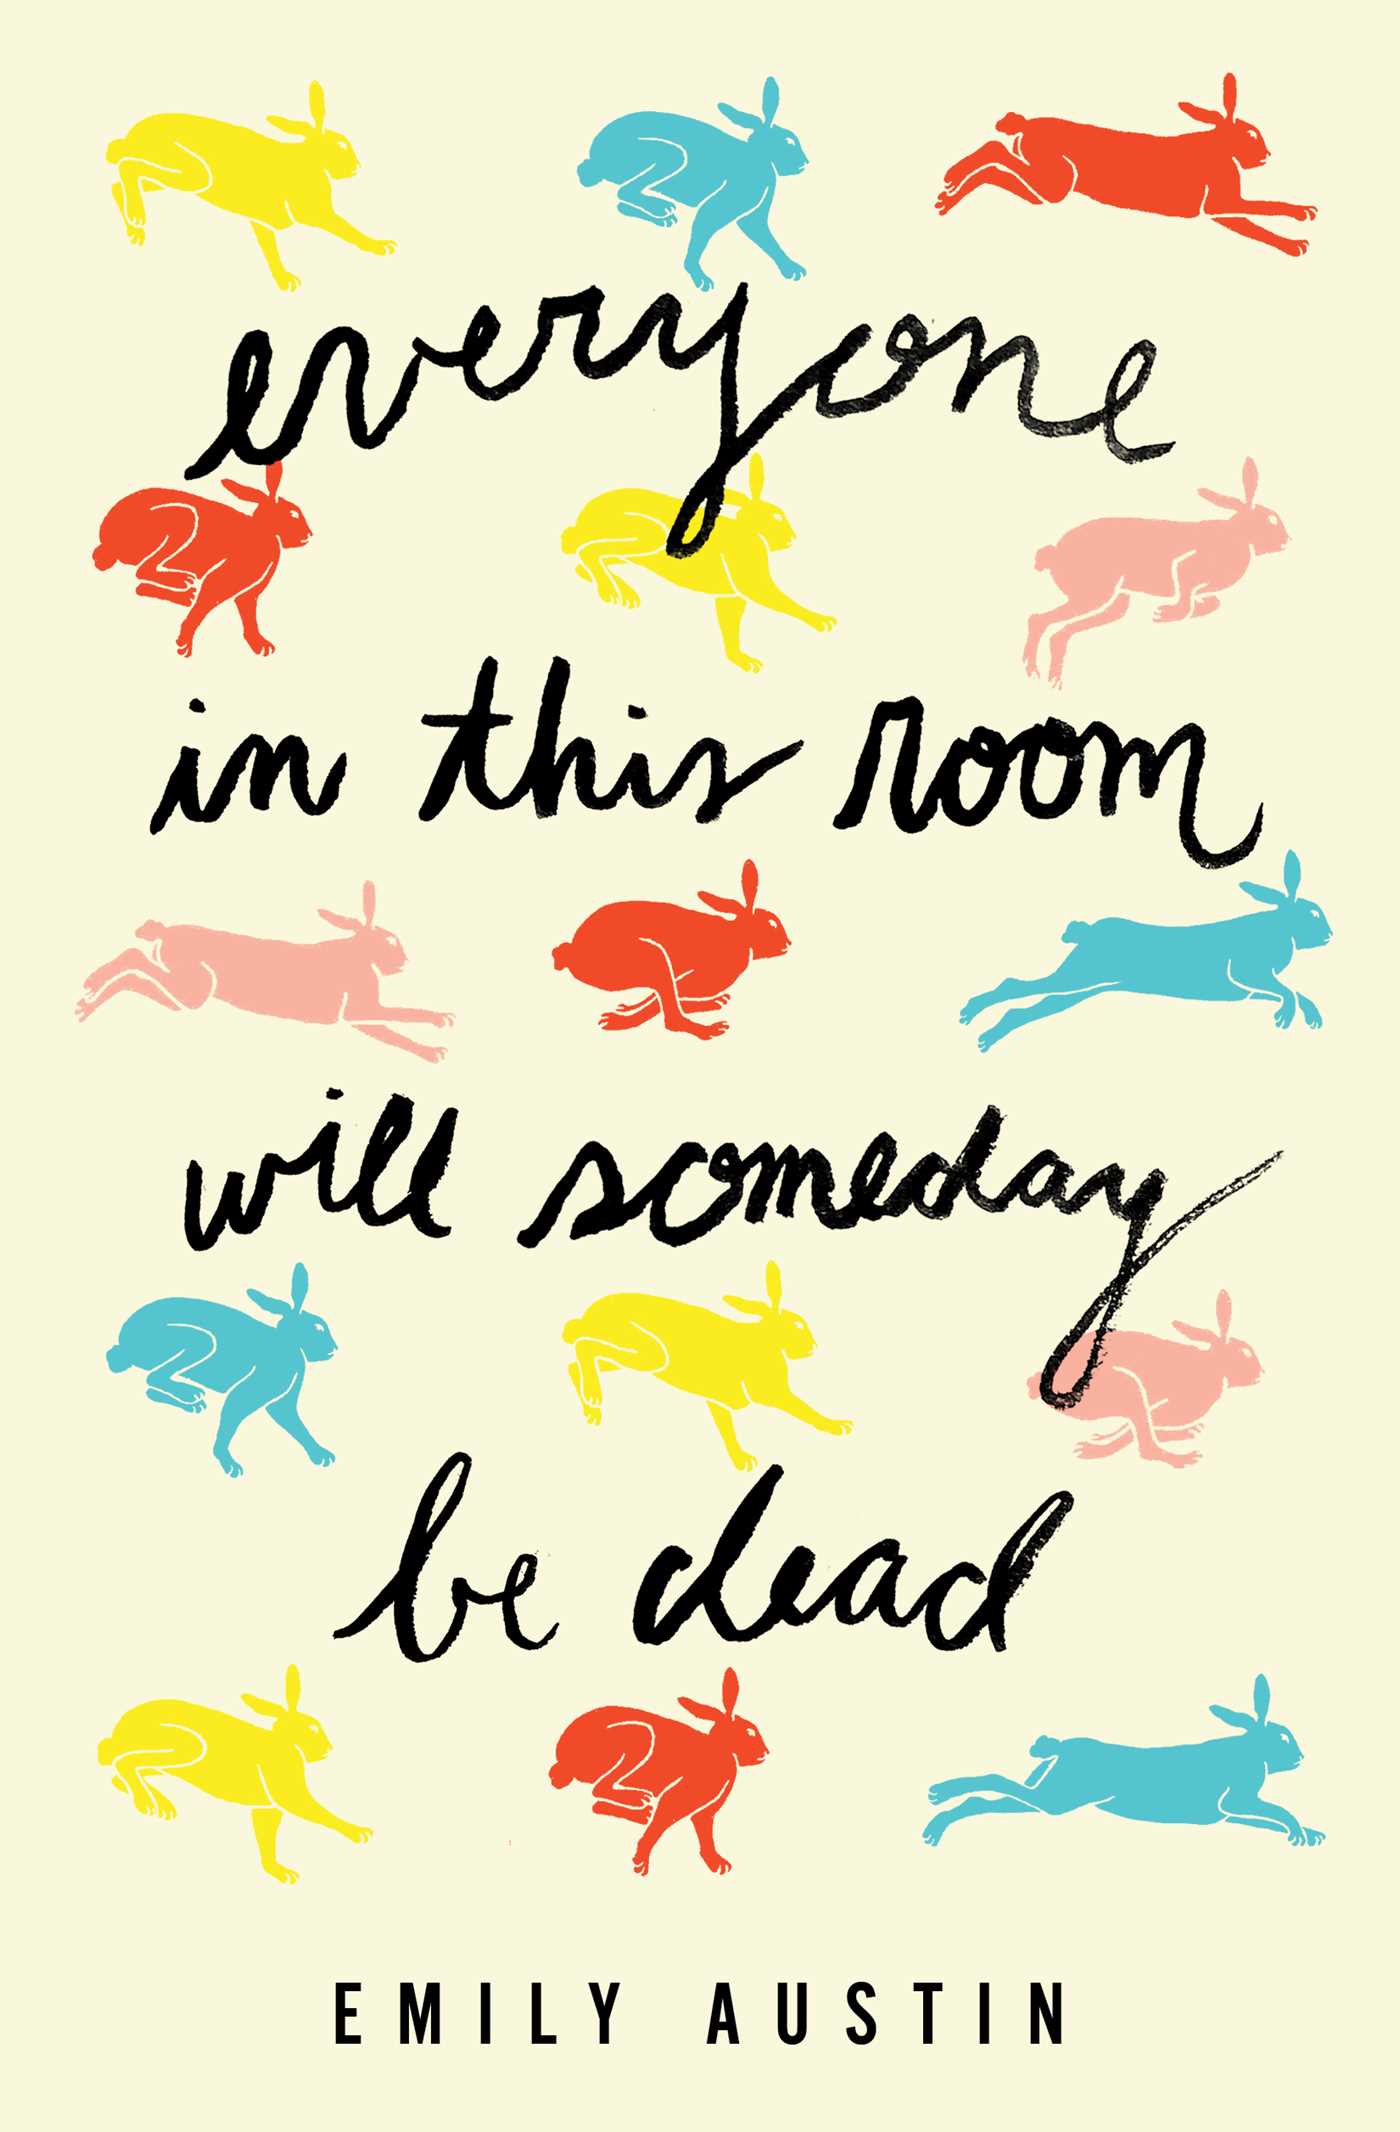 everyone
in this room
will someday
be dead
EMILY AUSTIN